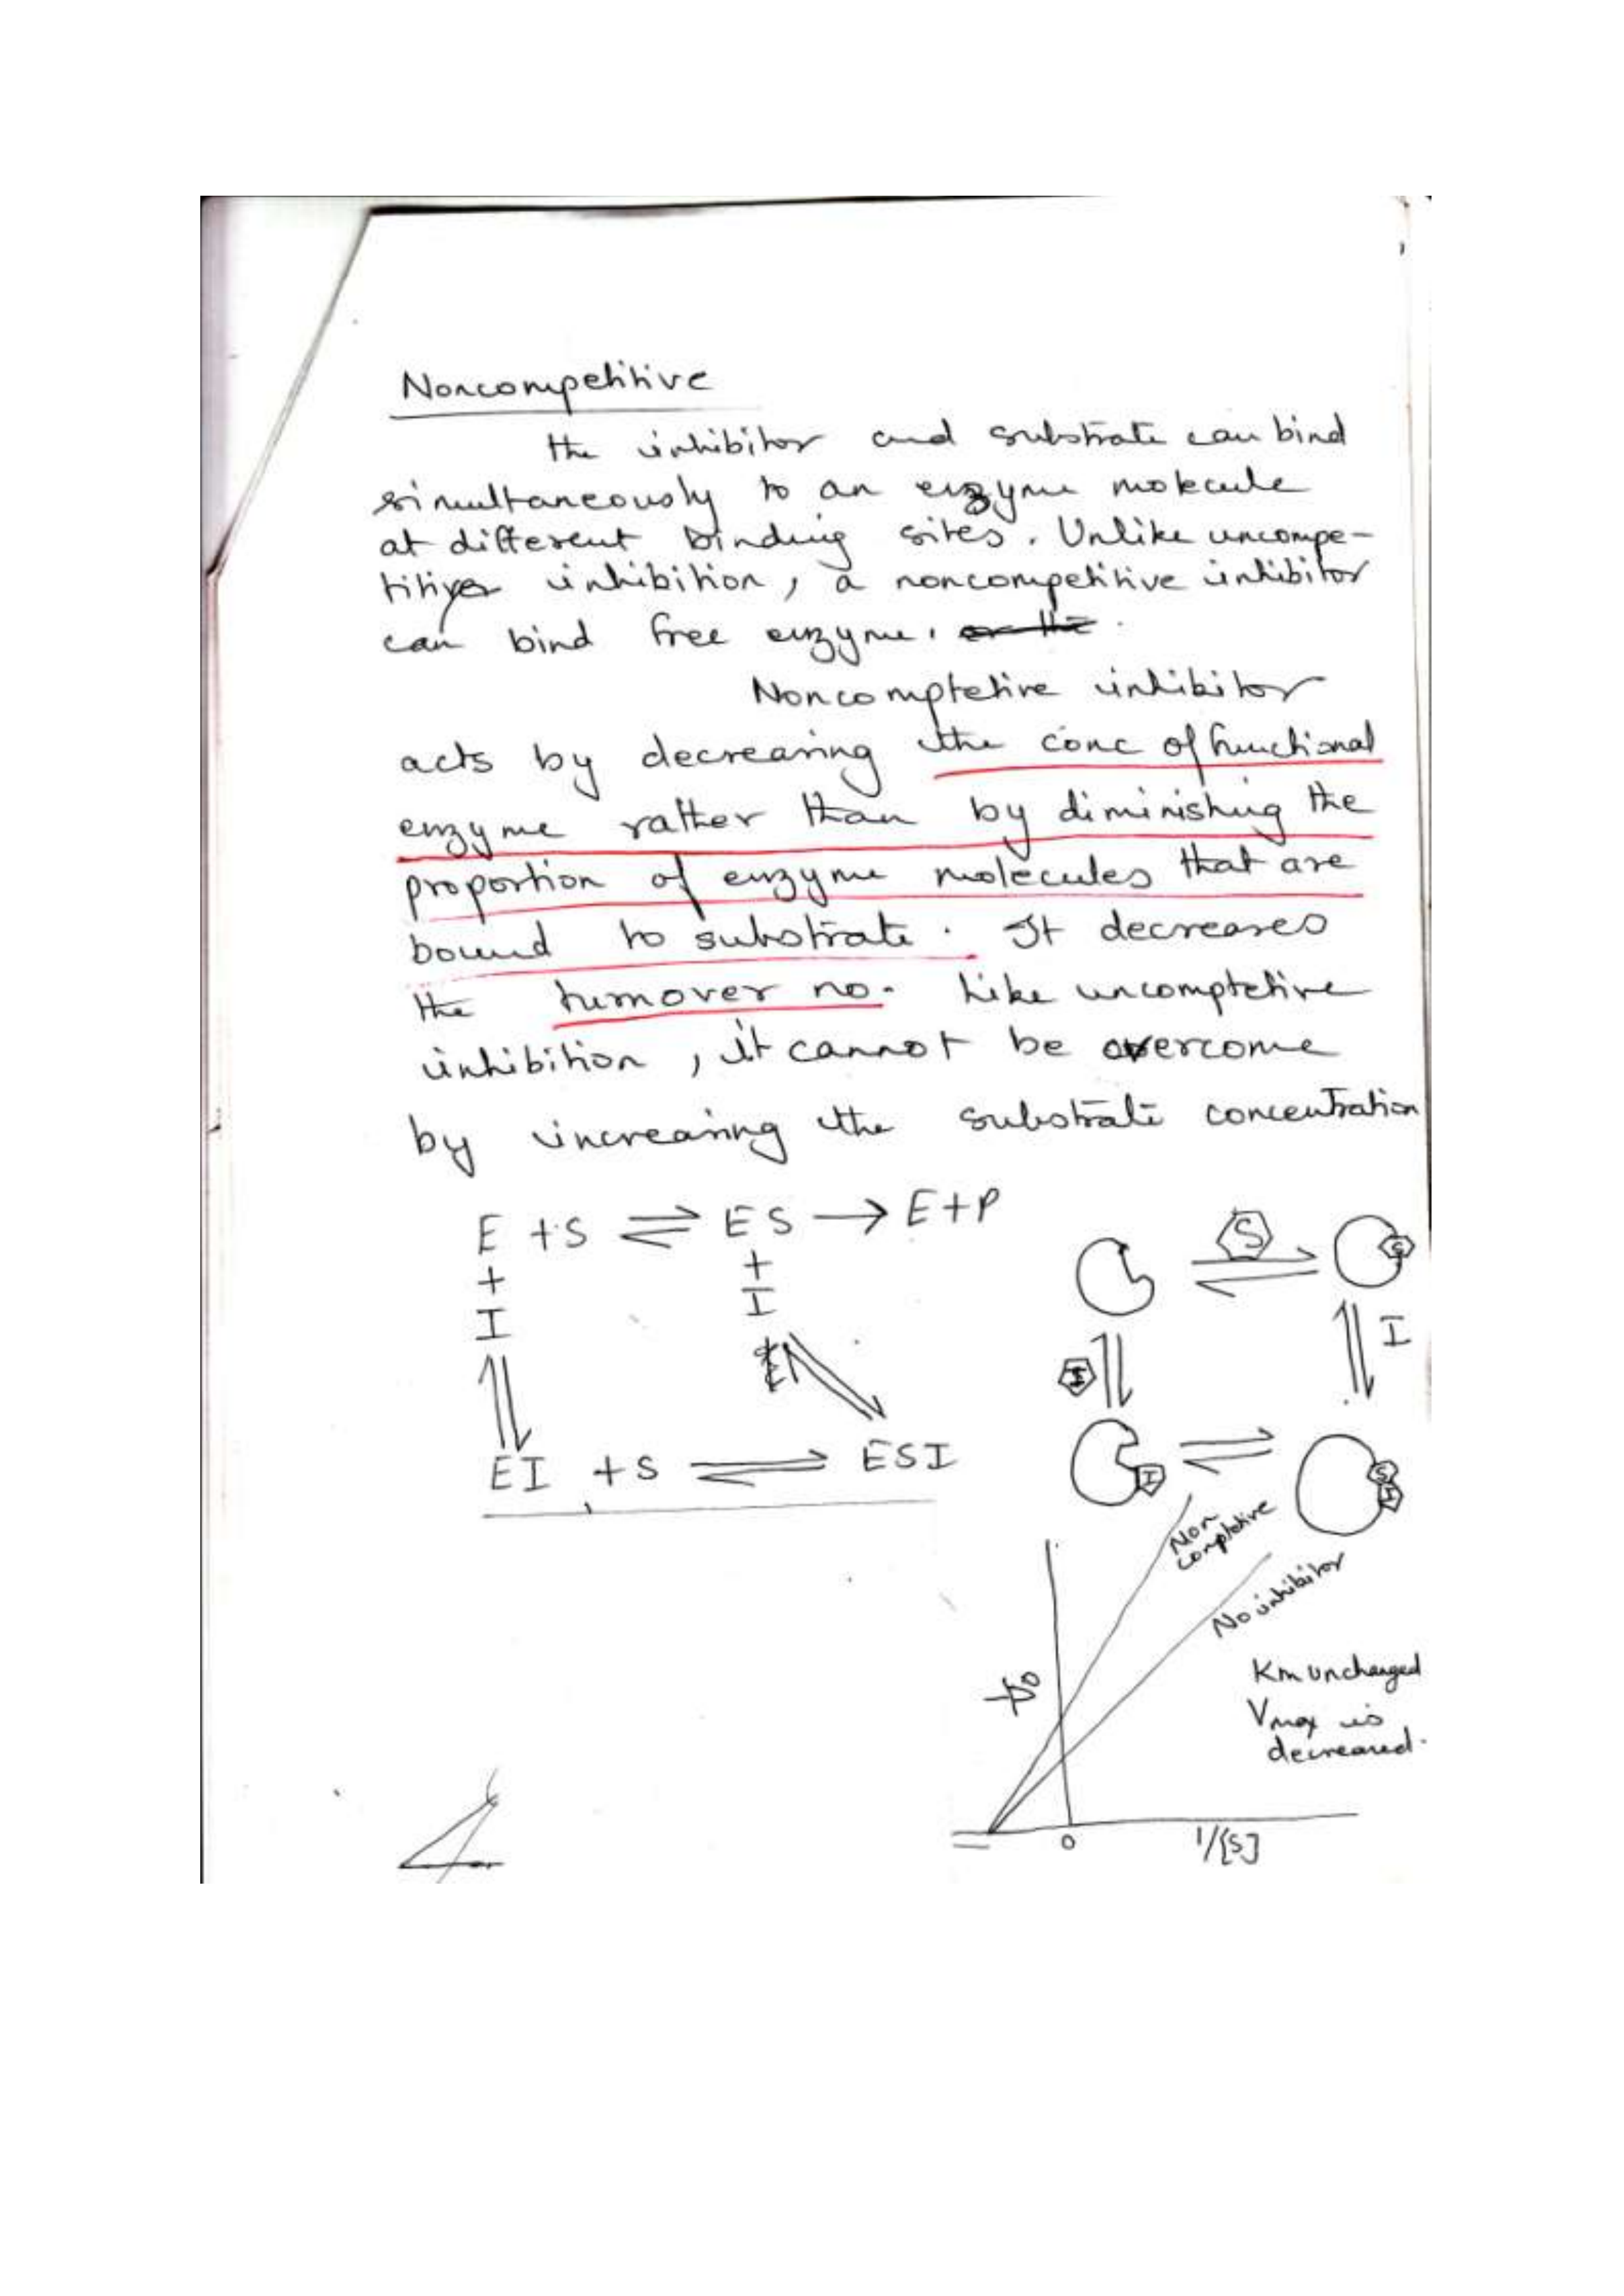 Noncompetitive
the inhibitor and substrate can bind
simultaneously to an enzyme molecule
at different binding sites. Unlike uncompe-
titive inhibition, a noncompetitive inhibitor
can bind free enzyme.
Noncomptetive inhibitor
acts by decreasing the conc of functional
enzyme rather than by diminishing the
proportion of enzyme molecules that are
bound to substrate. It decreases
the turnover no. Like uncomptetive
inhibition, it cannot be overcome
by increasing the substrate concentration
E + S ⇌ ES → E+P
+ +
I I
EI + S ⇌ ESI
S S
I I
I S I
Non
comptetive
No inhibitor
Km unchanged
Vmax is
decreased.
1/V0
0 1/[S]